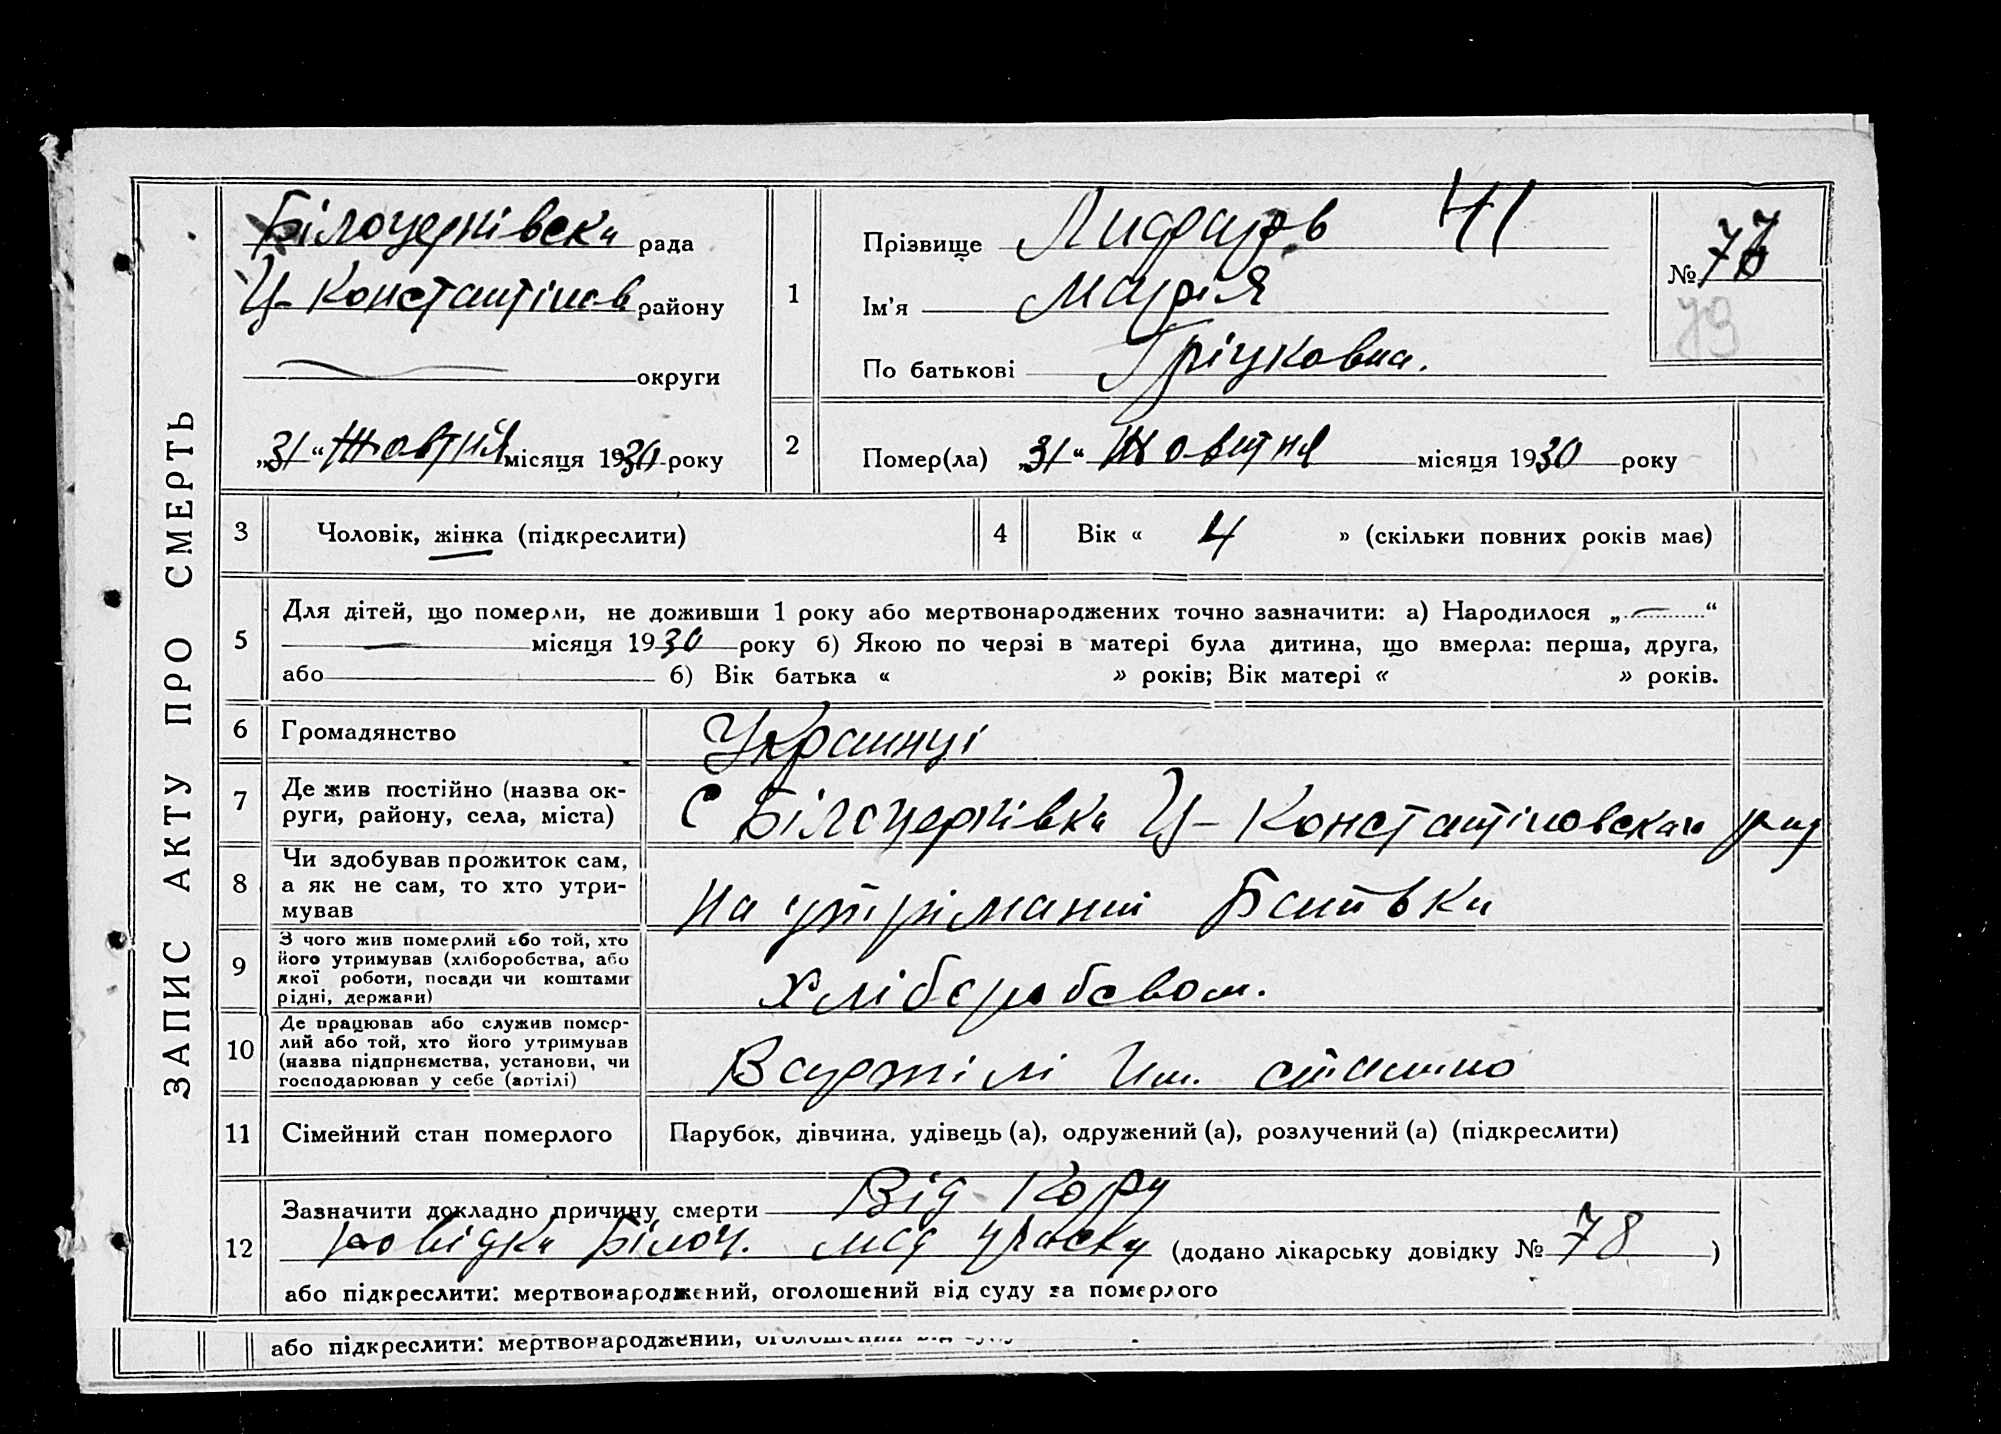 ЗАПИС АКТУ ПРО СМЕРТЬ
Білоцерківська рада
Ц-Константінов району
округи
„31“ Жовтня місяця 1930 року
1
Прізвище 41
Ім'я Марія
По батькові Гріцковна.
№ 77
79
2
Помер(ла) „31“ Жовтня місяця 1930 року
3 Чоловік, жінка (підкреслити)
4 Вік « 4 » (скільки повних років має)
5
Для дітей, що померли, не доживши 1 року або мертвонароджених точно зазначити: а) Народилося „ “
місяця 1930 року б) Якою по черзі в матері була дитина, що вмерла: перша, друга,
або б) Вік батька « » років; Вік матері « » років.
6 Громадянство Украинці
7 Де жив постійно (назва ок-
руги, району, села, міста)
С Білоцерківка Ц-Константіновскаи
8 Чи здобував прожиток сам,
а як не сам, то хто утри-
мував
На утріманні Батьки
9 З чого жив померлий або той, хто
його утримував (хліборобства, або
якої роботи, посади чи коштами
рідні, держави)
Хліборобсвом.
10 Де працював або служив помер-
лий або той, хто його утримував
(назва підприємства, установи, чи
господарював у себе (артілі)
В артілі Им. сталино
11 Сімейний стан померлого
Парубок, дівчина, удівець (а), одружений (а), розлучений (а) (підкреслити)
12
Зазначити докладно причину смерти Від Кору
довідка Білоц. мед участку (додано лікарську довідку № 78 )
або підкреслити: мертвонароджений, оголошений від суду за померлого
або підкреслити: мертвонароджений,